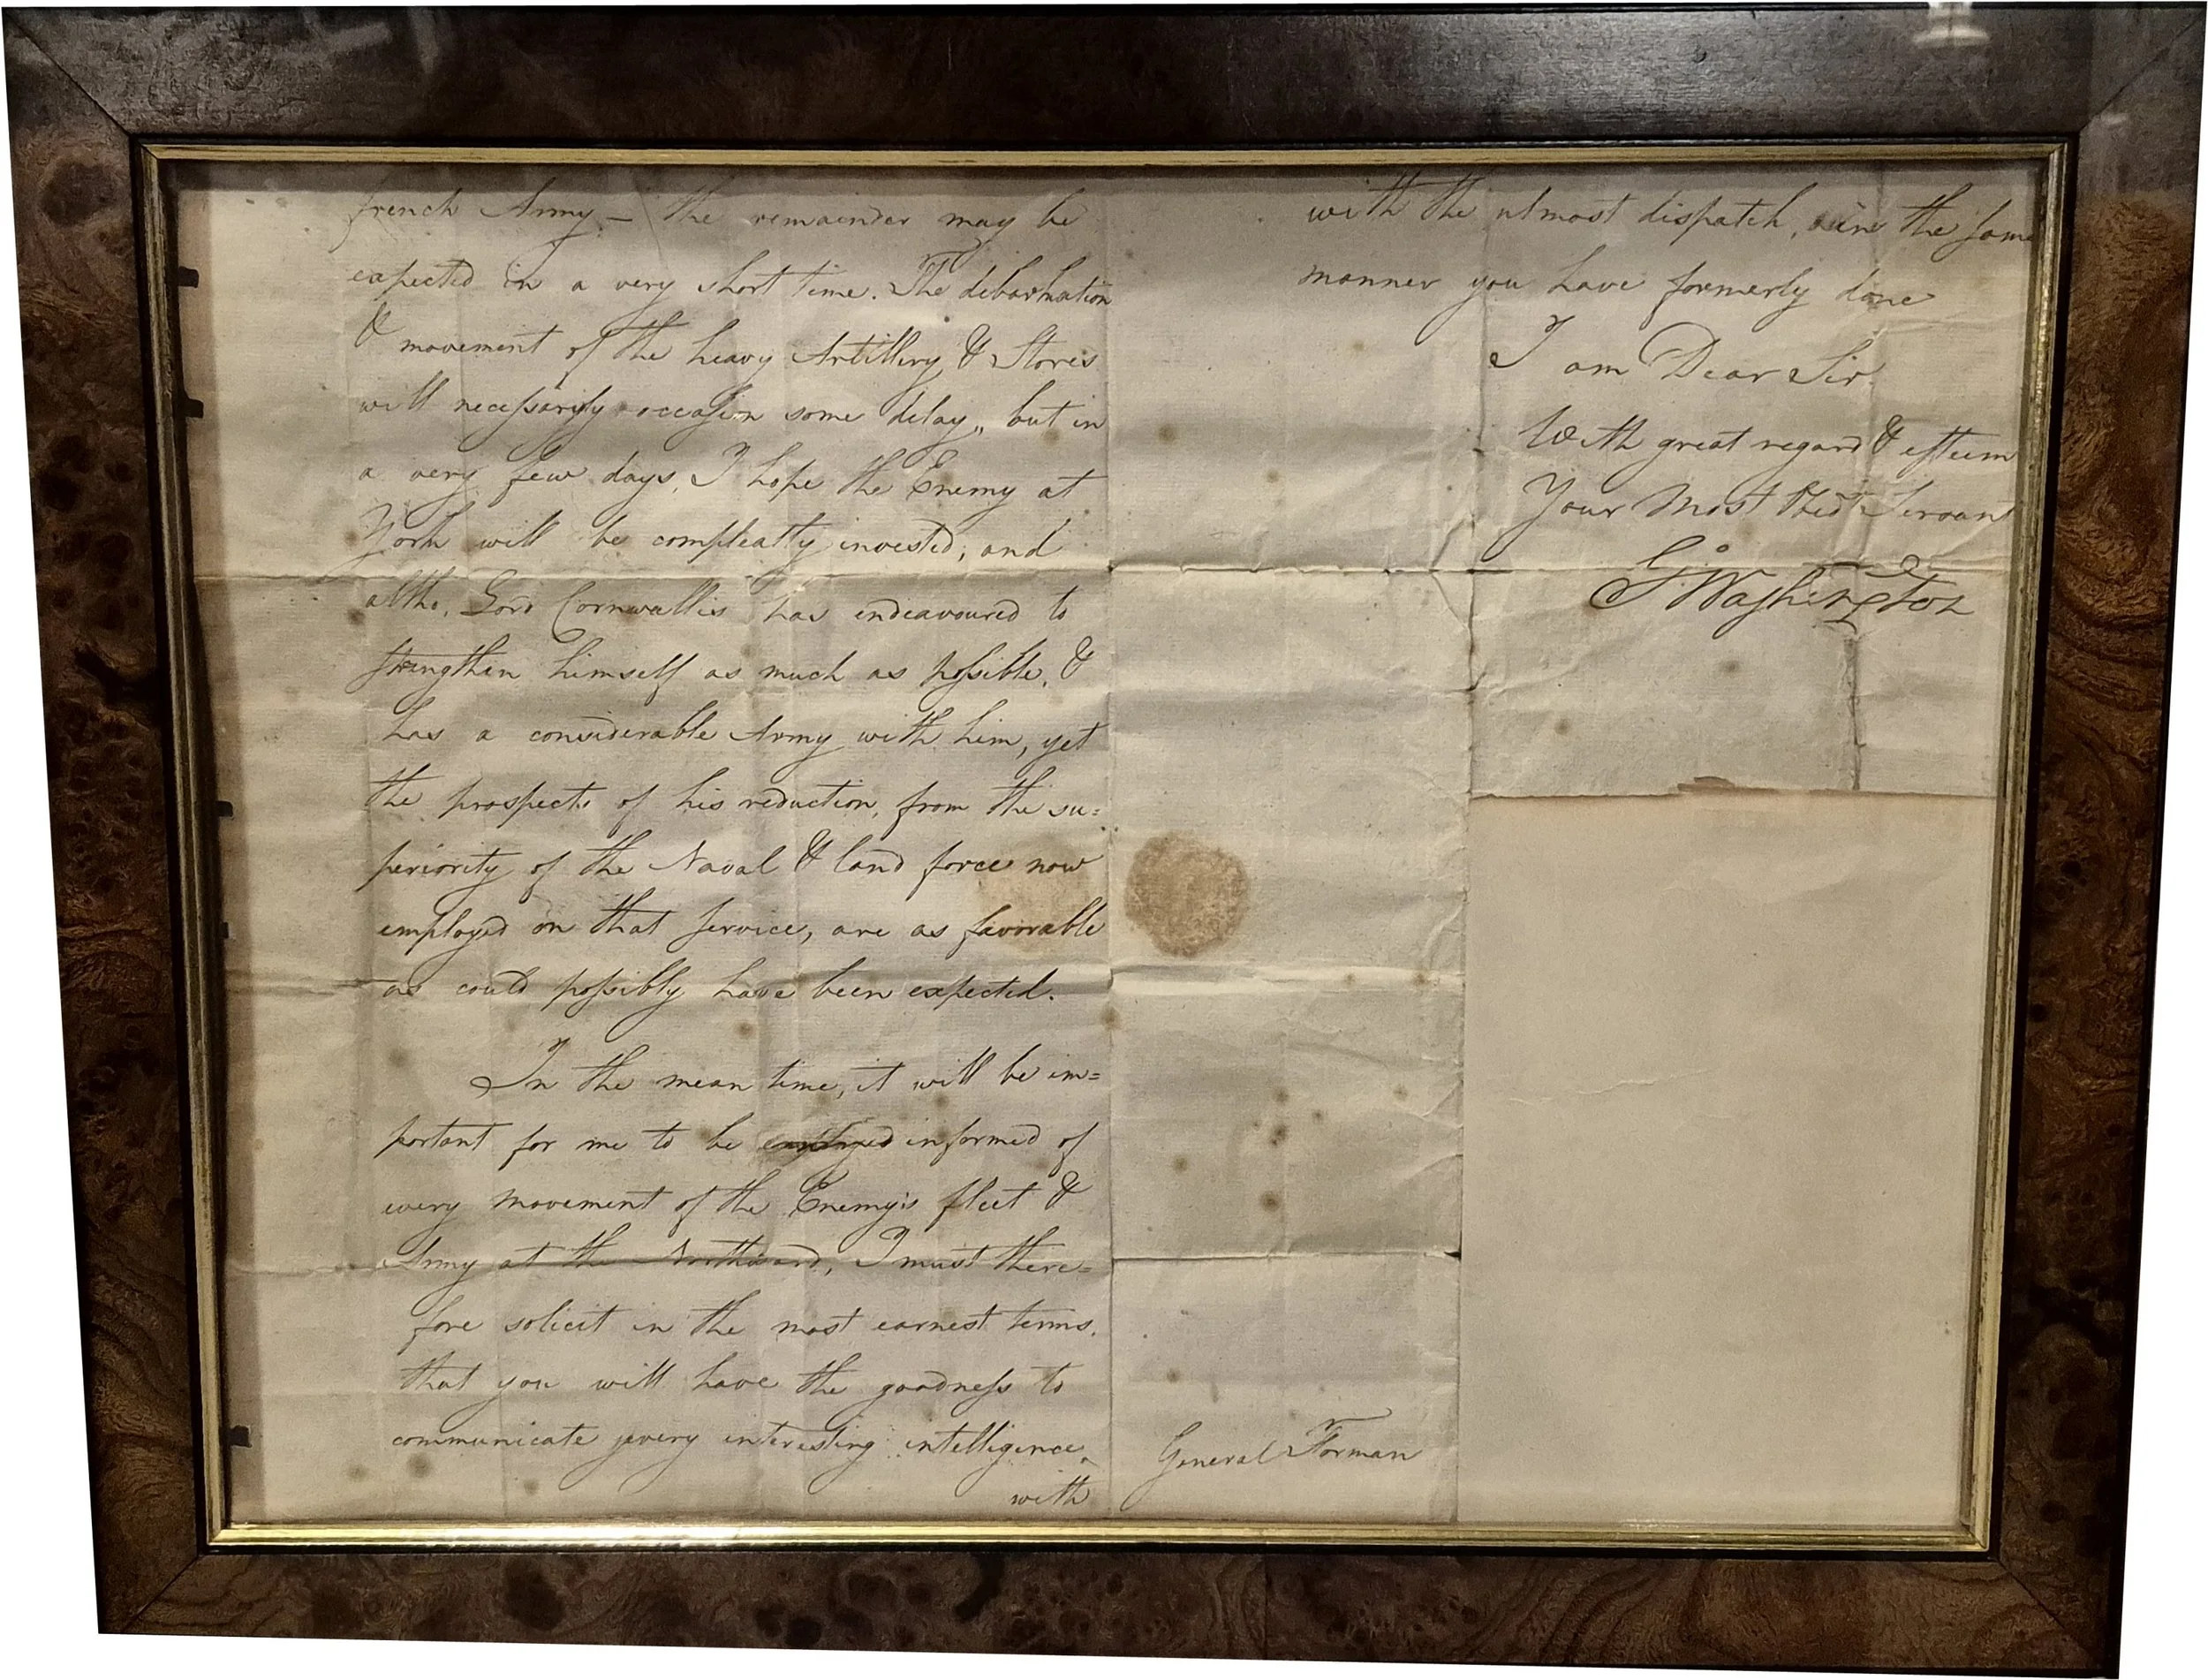 french Army – the remainder may be
expected in a very short time. The debarkation
& movement of the heavy Artillery & Stores
will necessarily occasion some delay, but in
a very few days, I hope the Enemy at
York will be compleatly invested, and
altho, Lord Cornwallis has endeavoured to
strengthen himself as much as possible, &
has a considerable Army with him, yet
the prospects of his reduction, from the su=
periority of the Naval & land force now
employed on that service, are as favorable
as could possibly have been expected.
In the mean time, it will be im=
portant for me to be informed of
every movement of the Enemy's fleet &
Army at the Northward, I must there=
fore solicit in the most earnest terms,
that you will have the goodness to
communicate every interesting intelligence,
with
General Forman
with the utmost dispatch, in the same
manner you have formerly done
I am Dear Sir
With great regard & esteem
Your Most Obed Servant
G Washington